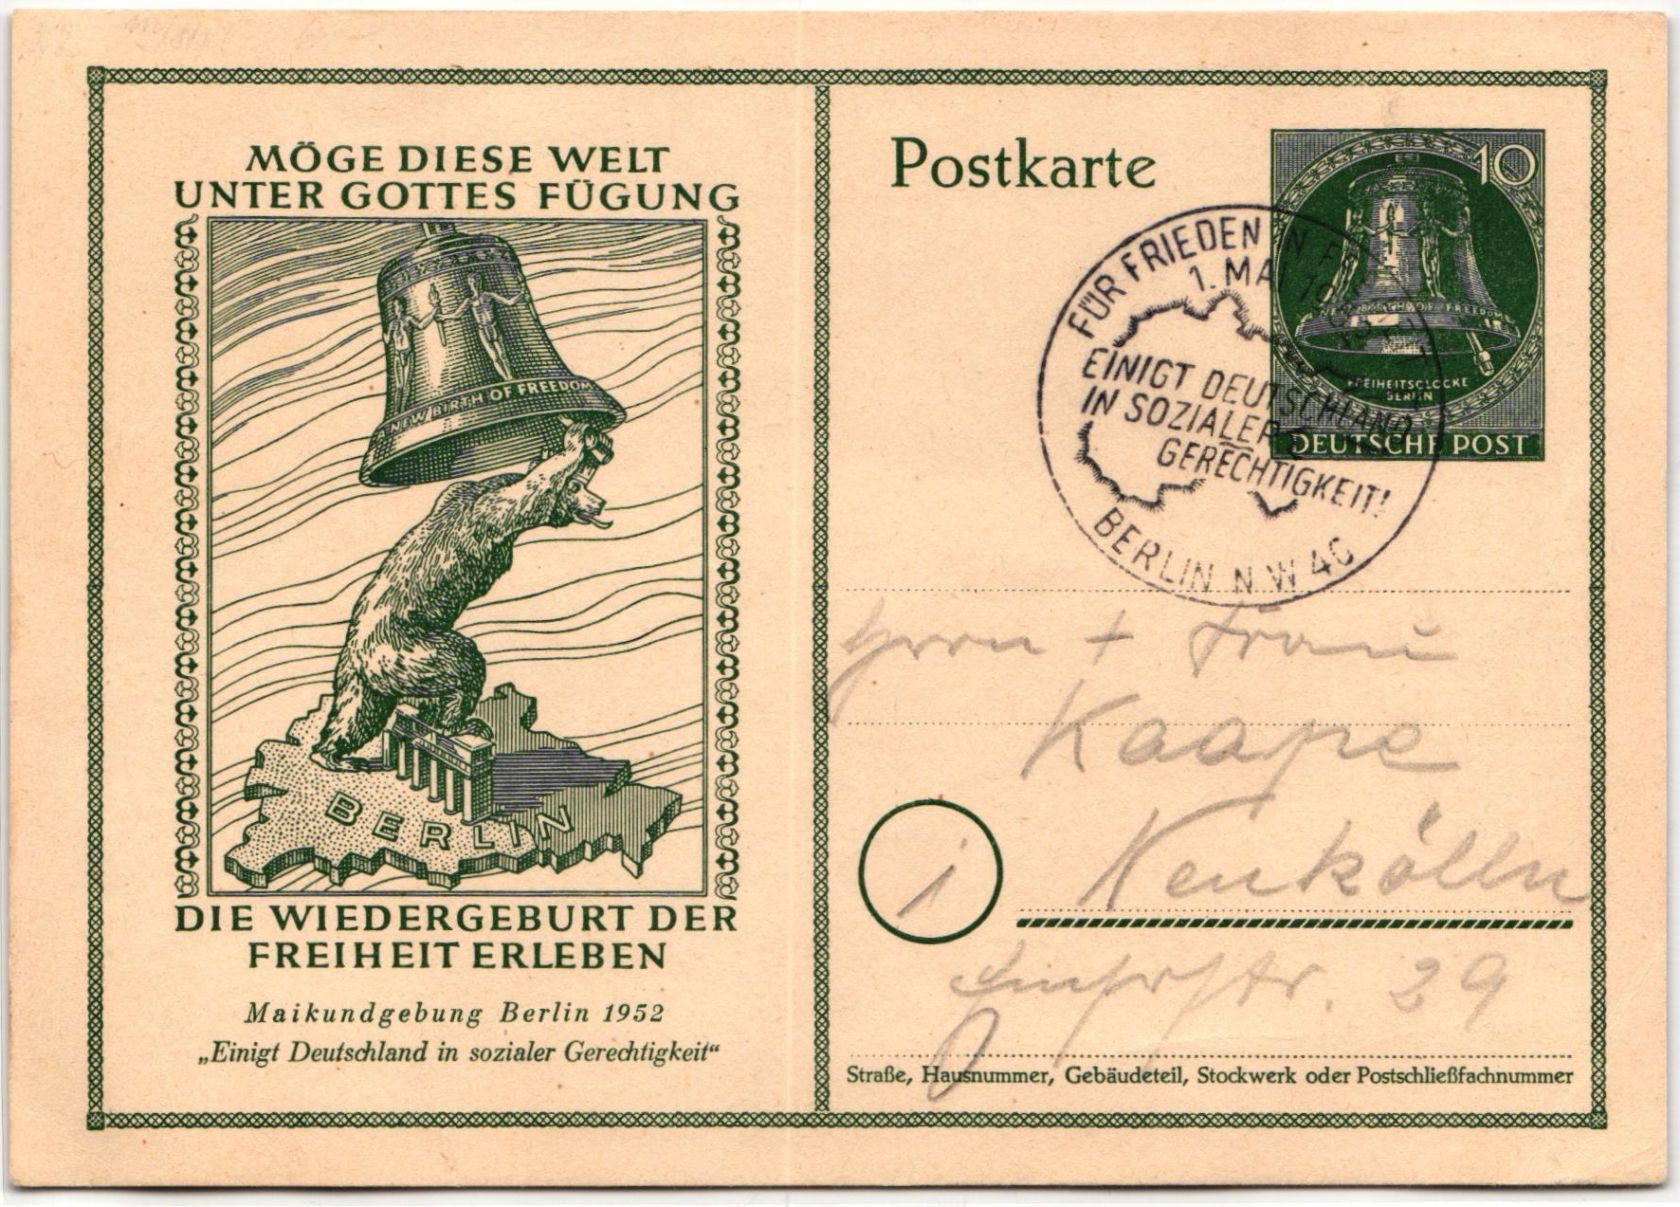 MÖGE DIESE WELT
UNTER GOTTES FÜGUNG
A NEW BIRTH OF FREEDOM
BERLIN
DIE WIEDERGEBURT DER
FREIHEIT ERLEBEN
Maikundgebung Berlin 1952
„Einigt Deutschland in sozialer Gerechtigkeit“
Postkarte
10
BIRTH OF FREEDOM
FREIHEITSGLOCKE
BERLIN
DEUTSCHE POST
FÜR FRIEDEN IN
1. MAI
EINIGT DEUTSCHLAND
IN SOZIALER
GERECHTIGKEIT!
BERLIN NW 40
Herrn + Frau
Kaape
1
Neukölln
29
Straße, Hausnummer, Gebäudeteil, Stockwerk oder Postschließfachnummer